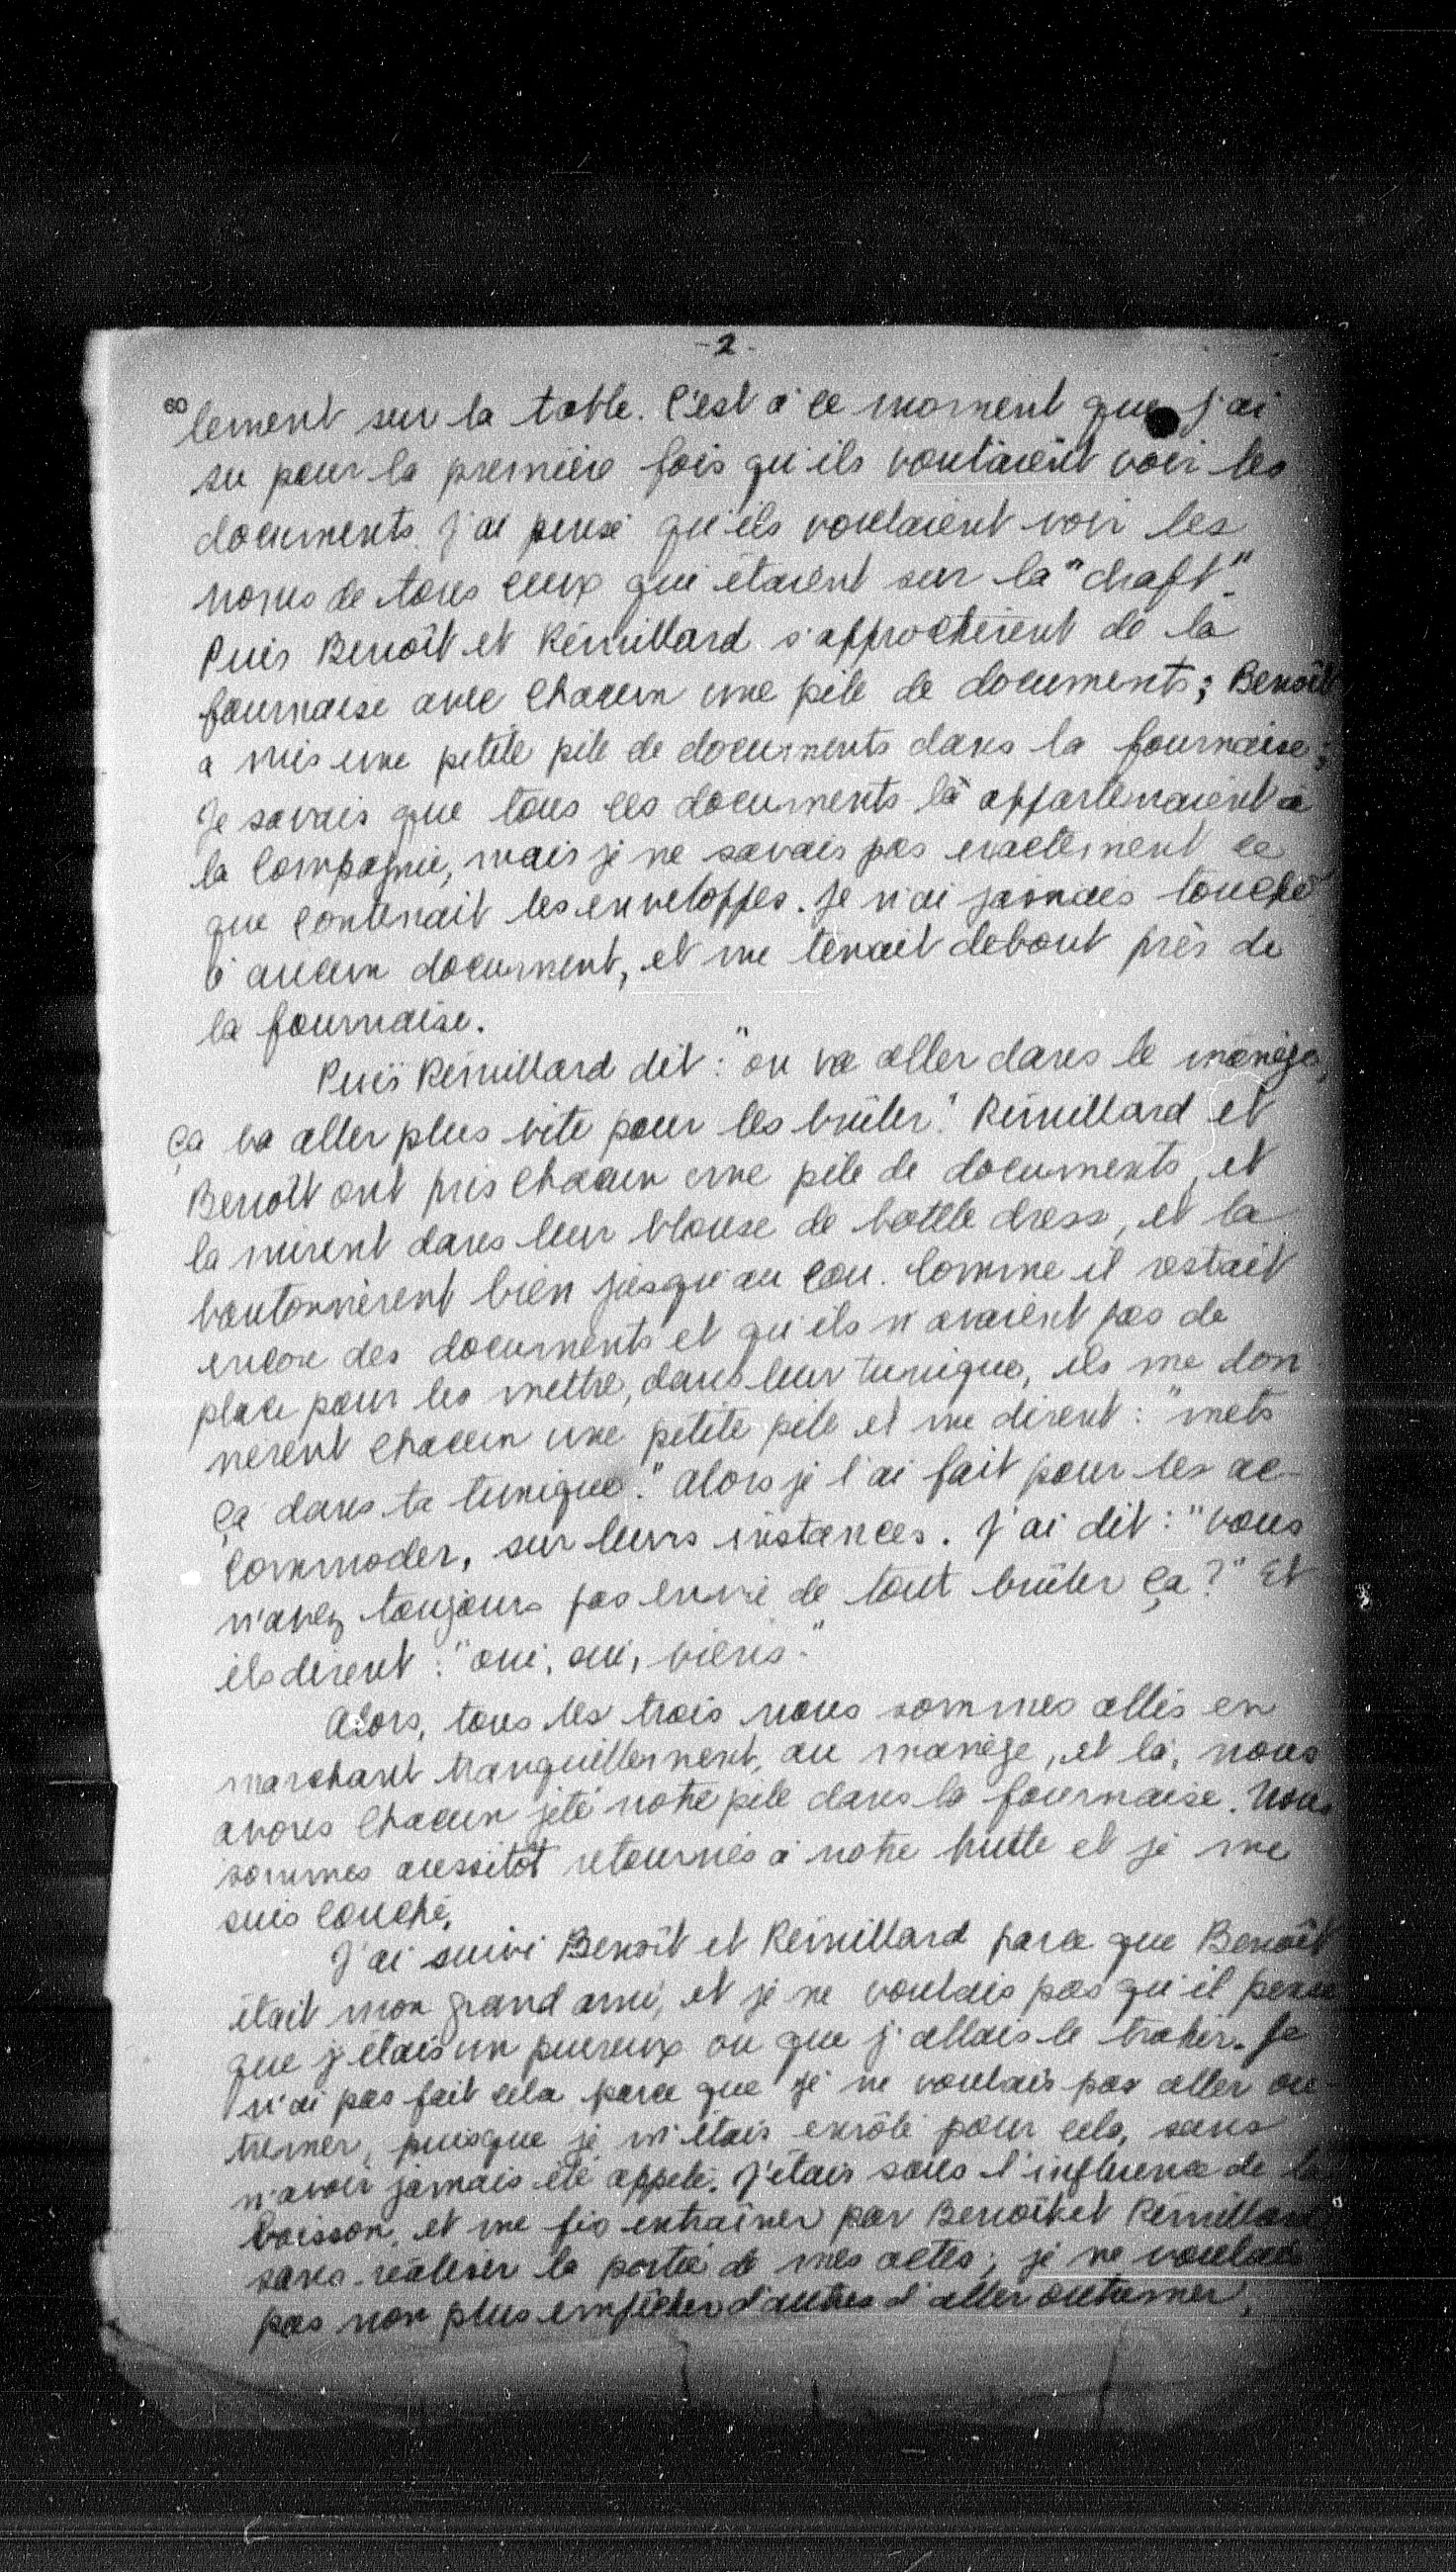 - 2 -
60
lement sur la table. C'est à ce moment que j'ai
su pour la première fois qu'ils voulaient voir les
documents. J'ai pensé qu'ils voulaient voir les
noms de tous ceux qui étaient sur la "draft".
Puis Benoît et Rémillard s'approchèrent de la
fournaise avec chacun une pile de documents; Benoît
a mis une petite pile de documents dans la fournaise;
Je savais que tous ces documents là appartenaient à
la Compagnie, mais je ne savais pas exactement ce
que contenait les enveloppes. Je n'ai jamais touché
à aucun document, et me tenait debout près de
la fournaise.
Puis Rémillard dit: "on va aller dans le manège,
ça va aller plus vite pour les brûler." Rémillard et
Benoît ont pris chacun une pile de documents, et
la mirent dans leur blouse de battle dress, et la
boutonnèrent bien jusqu'au cou. Comme il restait
encore des documents et qu'ils n'avaient pas de
place pour les mettre, dans leur tunique, ils me don
nèrent chacun une petite pile et me dirent: "mets
ça dans ta tunique." Alors je l'ai fait pour les ac-
commoder, sur leurs instances. J'ai dit: "vous
n'avez toujours pas envie de tout brûler ça?" Et
ils dirent: "oui, oui, viens."
Alors, tous les trois nous sommes allés en
marchant tranquillement, au manège, et là, nous
avons chacun jeté notre pile dans la fournaise. Nous
sommes aussitôt retournés à notre hutte et je me
suis couché.
J'ai suivi Benoît et Rémillard parce que Benoît
était mon grand ami, et je ne voulais pas qu'il pense
que j'étais un peureux ou que j'allais le trahir. Je
n'ai pas fait cela parce que je ne voulais pas aller ou-
tremer, puisque je m'étais enrôlé pour cela, sans
n'avoir jamais été appelé. J'étais sous l'influence de la
boisson, et me fis entraîner par Benoît et Rémillard
sans réaliser la portée de mes actes; je ne voulais
pas non plus empêcher d'autres d'aller outremer.